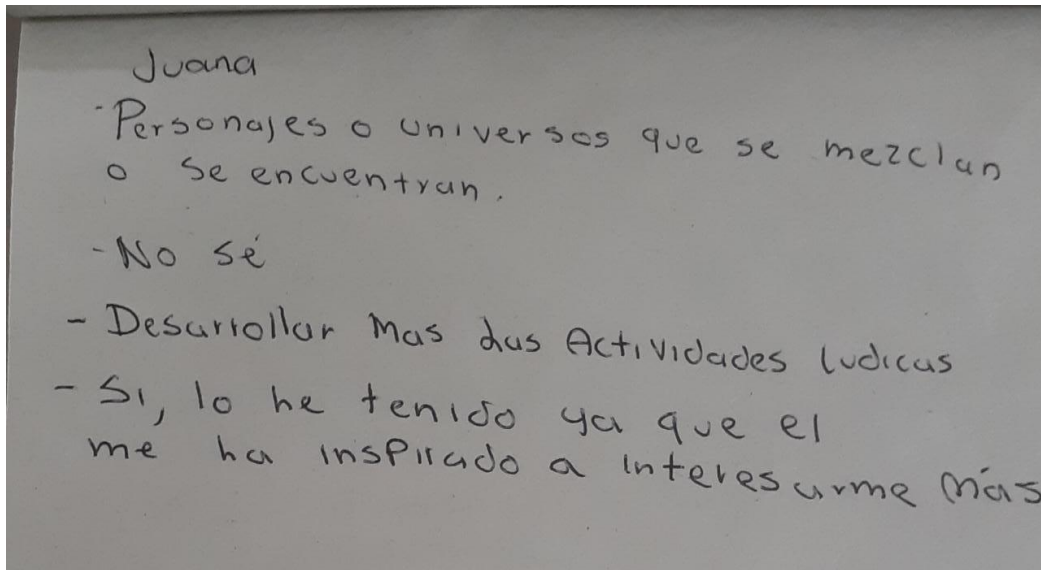 Juana
- Personajes o universos que se mezclan
o se encuentran.
- No sé
- Desarrollar Mas las Actividades ludicas
- Si, lo he tenido ya que el
me ha inspirado a interesarme más